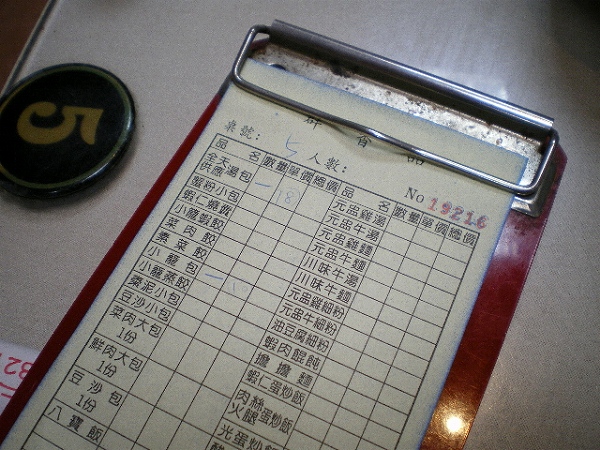 5
桌號: 5 人數:
No 19216
品 名 數量 單價 總價 品 名 數量 單價 總價
全天供應湯包 元盅雞湯
蟹粉小包 一 元盅牛湯
蝦仁燒賣 元盅雞麵
小籠蝦餃 元盅牛麵
菜肉餃 川味牛湯
素菜餃 川味牛麵
小籠包 一 元盅雞細粉
小籠蒸餃 元盅牛細粉
棗泥小包 油豆腐細粉
豆沙小包 蝦肉餛飩
菜肉大包 1份 擔擔麵
鮮肉大包 1份 蝦仁蛋炒飯
豆沙包 1份 肉絲蛋炒飯
八寶飯 火腿
光蛋炒飯